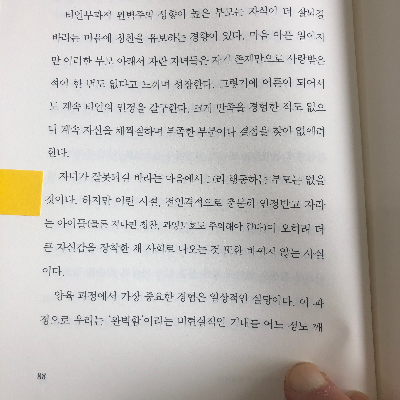 타인부과적 완벽주의 성향이 높은 부모는 자식이 더 잘되길
바라는 마음에 칭찬을 유보하는 경향이 있다. 마음 아픈 일이지
만 이러한 부모 아래서 자란 자녀들은 자기 존재만으로 사랑받은
적이 한 번도 없다고 느끼며 성장한다. 그렇기에 어른이 되어서
도 계속 타인의 인정을 갈구한다. 크게 만족을 경험한 적도 없으
니 계속 자신을 채찍질하며 부족한 부분이나 결점을 찾아 없애려
한다.
자녀가 잘못되길 바라는 마음에서 그리 행동하는 부모는 없을
것이다. 하지만 어린 시절, 전인격적으로 충분히 인정받고 자라
는 아이들(물론 지나친 칭찬, 과잉보호도 주의해야 한다)이 오히려 더
큰 자신감을 장착한 채 사회로 나오는 것 또한 변하지 않는 사실
이다.
양육 과정에서 가장 중요한 경험은 일상적인 실망이다. 이 과
정으로 우리는 '완벽함'이라는 비현실적인 기대를 어느 정도 깨
88